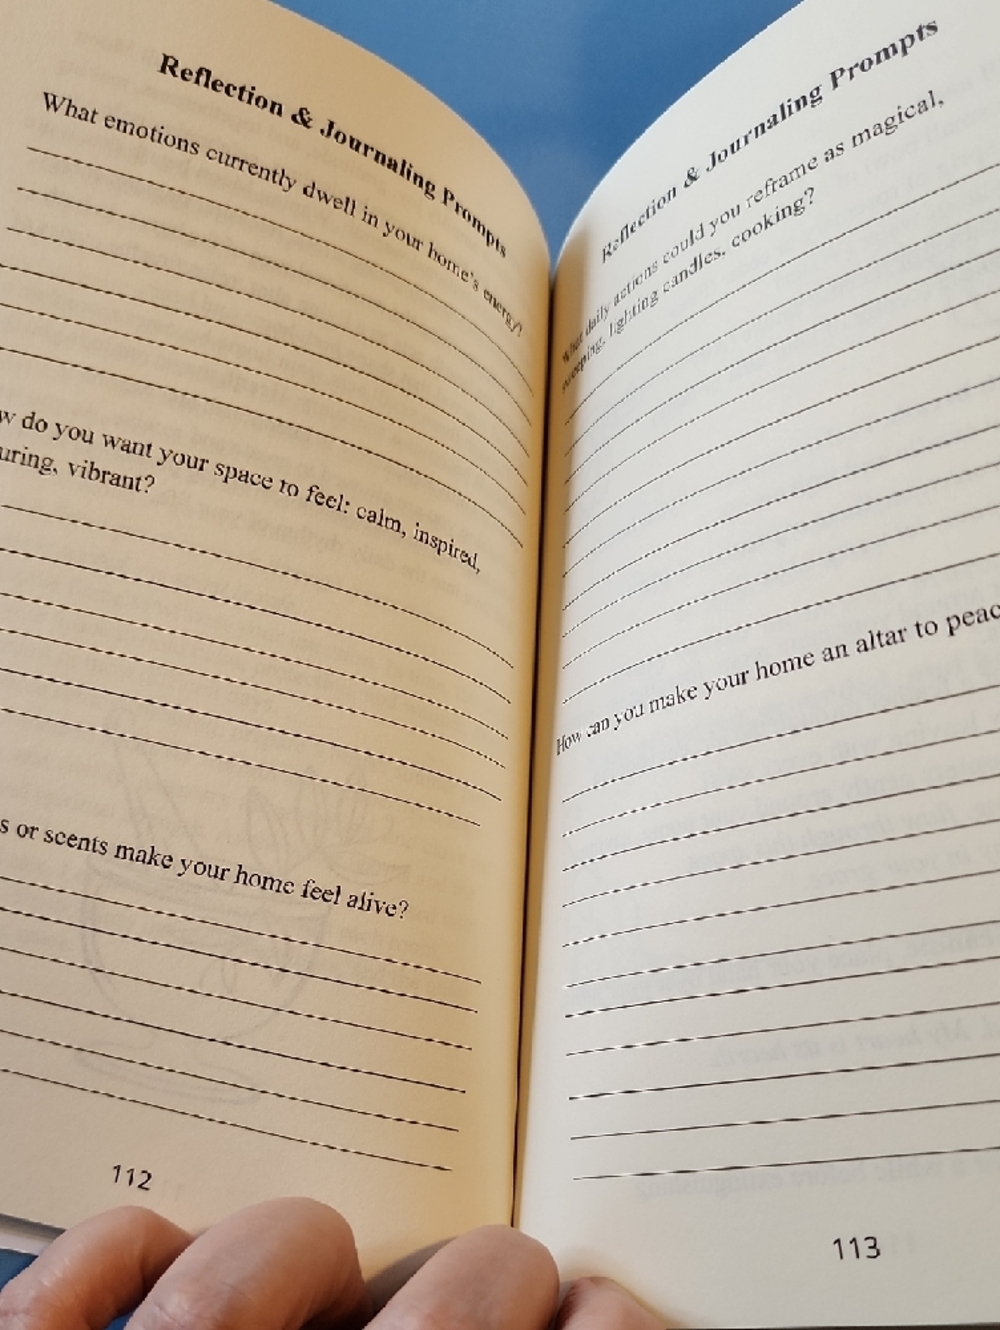 Reflection & Journaling Prompts
What emotions currently dwell in your home's energy?
w do you want your space to feel: calm, inspired,
uring, vibrant?
s or scents make your home feel alive?
112
Reflection & Journaling Prompts
What daily actions could you reframe as magical,
sweeping, lighting candles, cooking?
How can you make your home an altar to peac
113